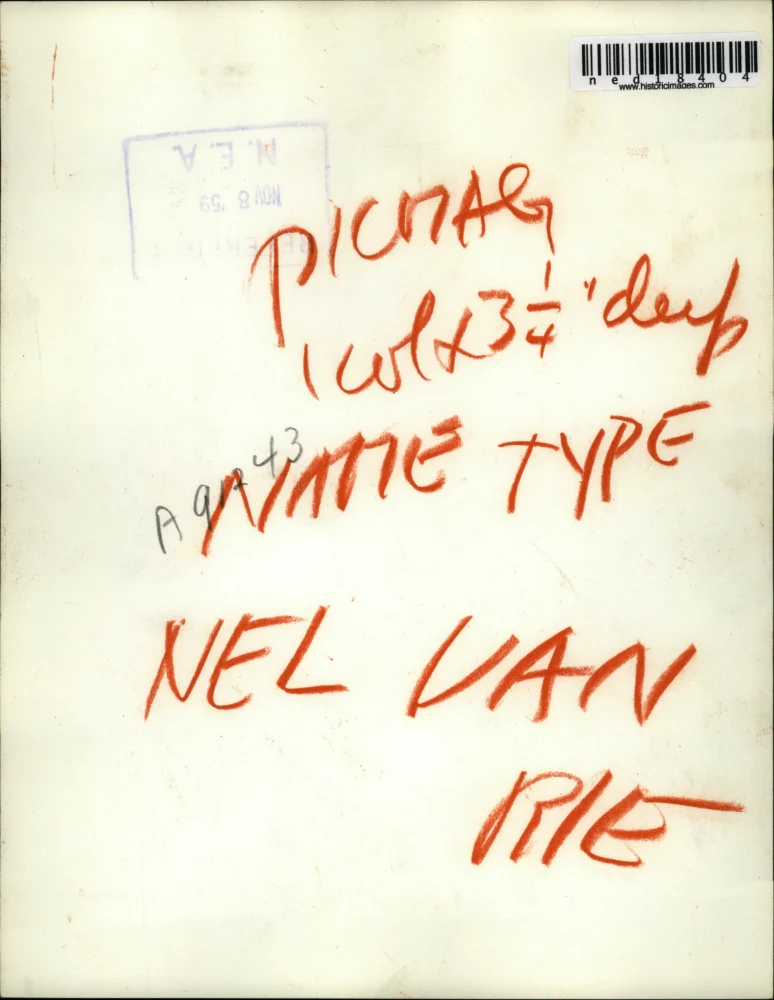 ned18404
www.historicimages.com
N.E.A.
NOV 8 '59
PICMAG
1 col x 3 1/4" deep
NAME TYPE
NEL VAN
RIE